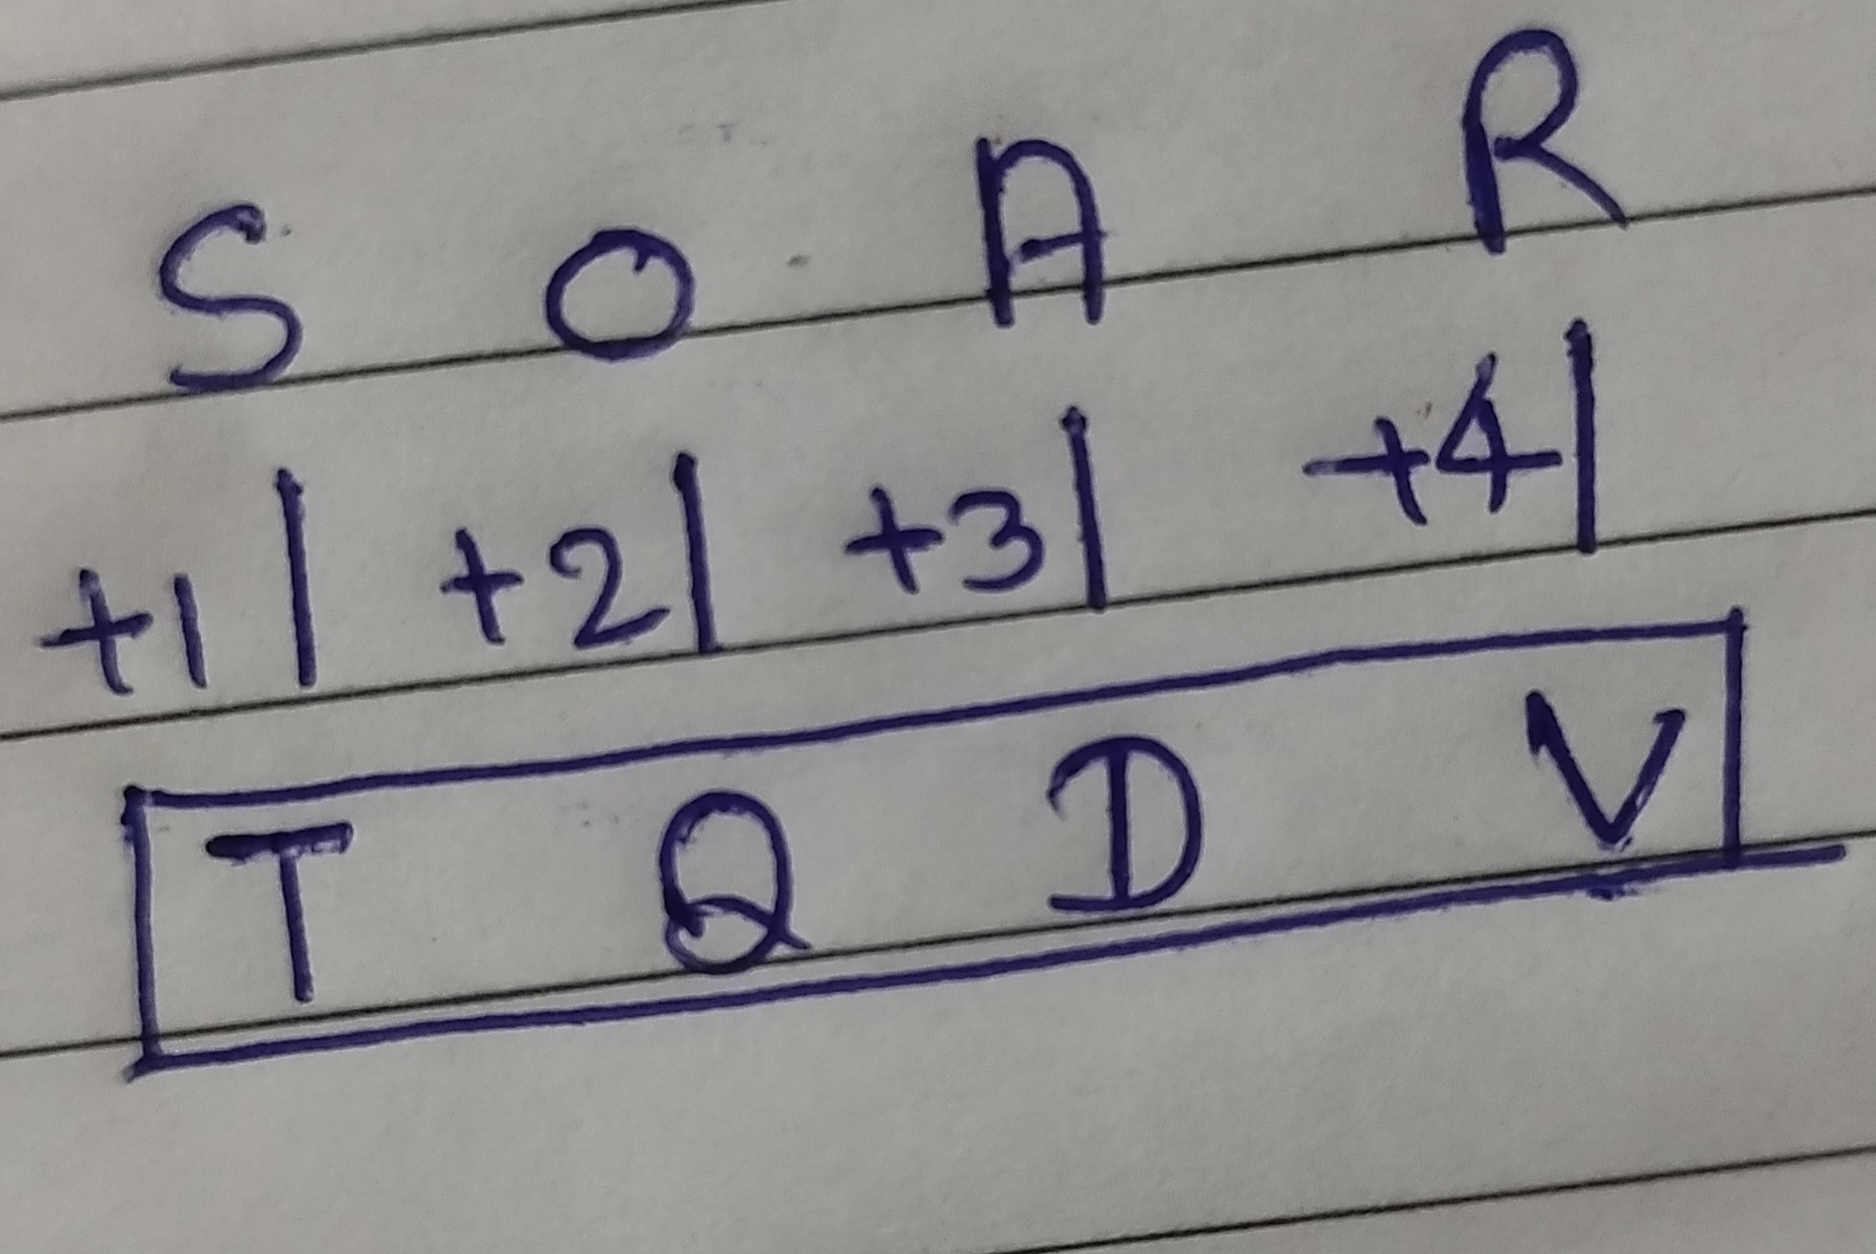 S O A R
+1| +2| +3| +4|
T Q D V